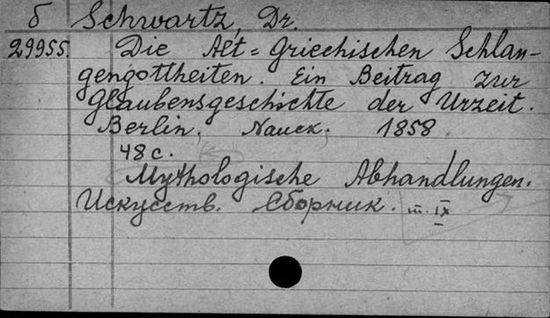 б Schwartz, Dr.
29955. Die Alt=Griechischen Schlan-
gengottheiten. Ein Beitrag zur
Glaubensgeschichte der Urzeit.
Berlin. Nauck. 1858
48 c.
Mythologische Abhandlungen.
Искусств. Сборник. III. IX
I